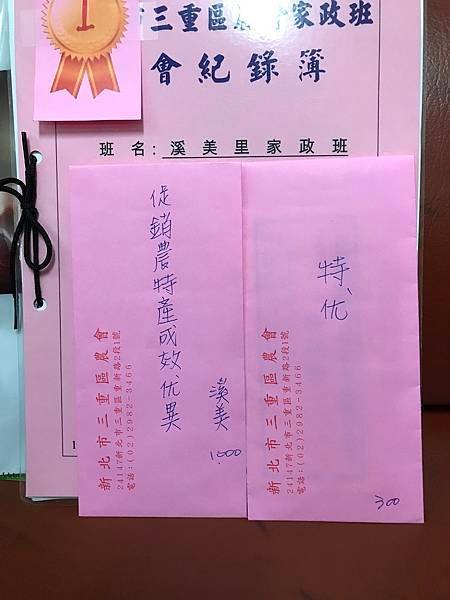 1
市三重區農會家政班
會紀錄簿
班名:溪美里家政班
促銷農特產成效优異
溪美
1000
新北市三重區農會
24147新北市三重區重新路2段1號
電話:(02)2982-3466
特优
300
新北市三重區農會
24147新北市三重區重新路2段1號
電話:(02)2982-3466